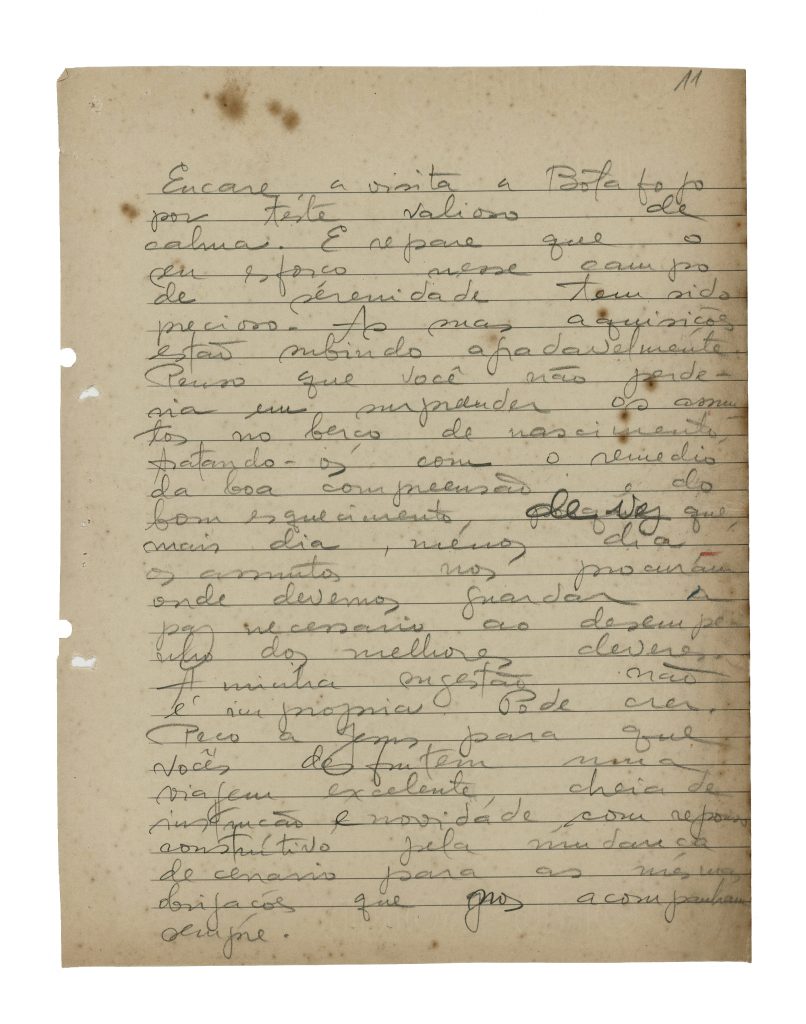 11
Encare a visita a Bôtafogo
por téste valioso de
calma. E repare que o
seu esforço nesse campo
de serenidade tem sido
precioso. As suas aquisições
estão subindo agradavelmente.
Penso que você não perde-
ria em surpreender os assun
tos no berço de nascimento,
tratando-os com o remedio
da boa compreensão e do
bom esquecimento de vez que,
mais dia, ménos dia
os assuntos nos procuram
onde devemos guardar a
paz necessario ao desempe-
nho dos melhores deveres.
A minha sugestão não
é impropria. Póde crer.
Peço a Jesus para que
vocês desfrutem uma
viagem excelente, cheia de
instrução e novidade com repouso
construtivo pela mudança
de cenario para as mésmas
obrigações que nos acompanham
sempre.